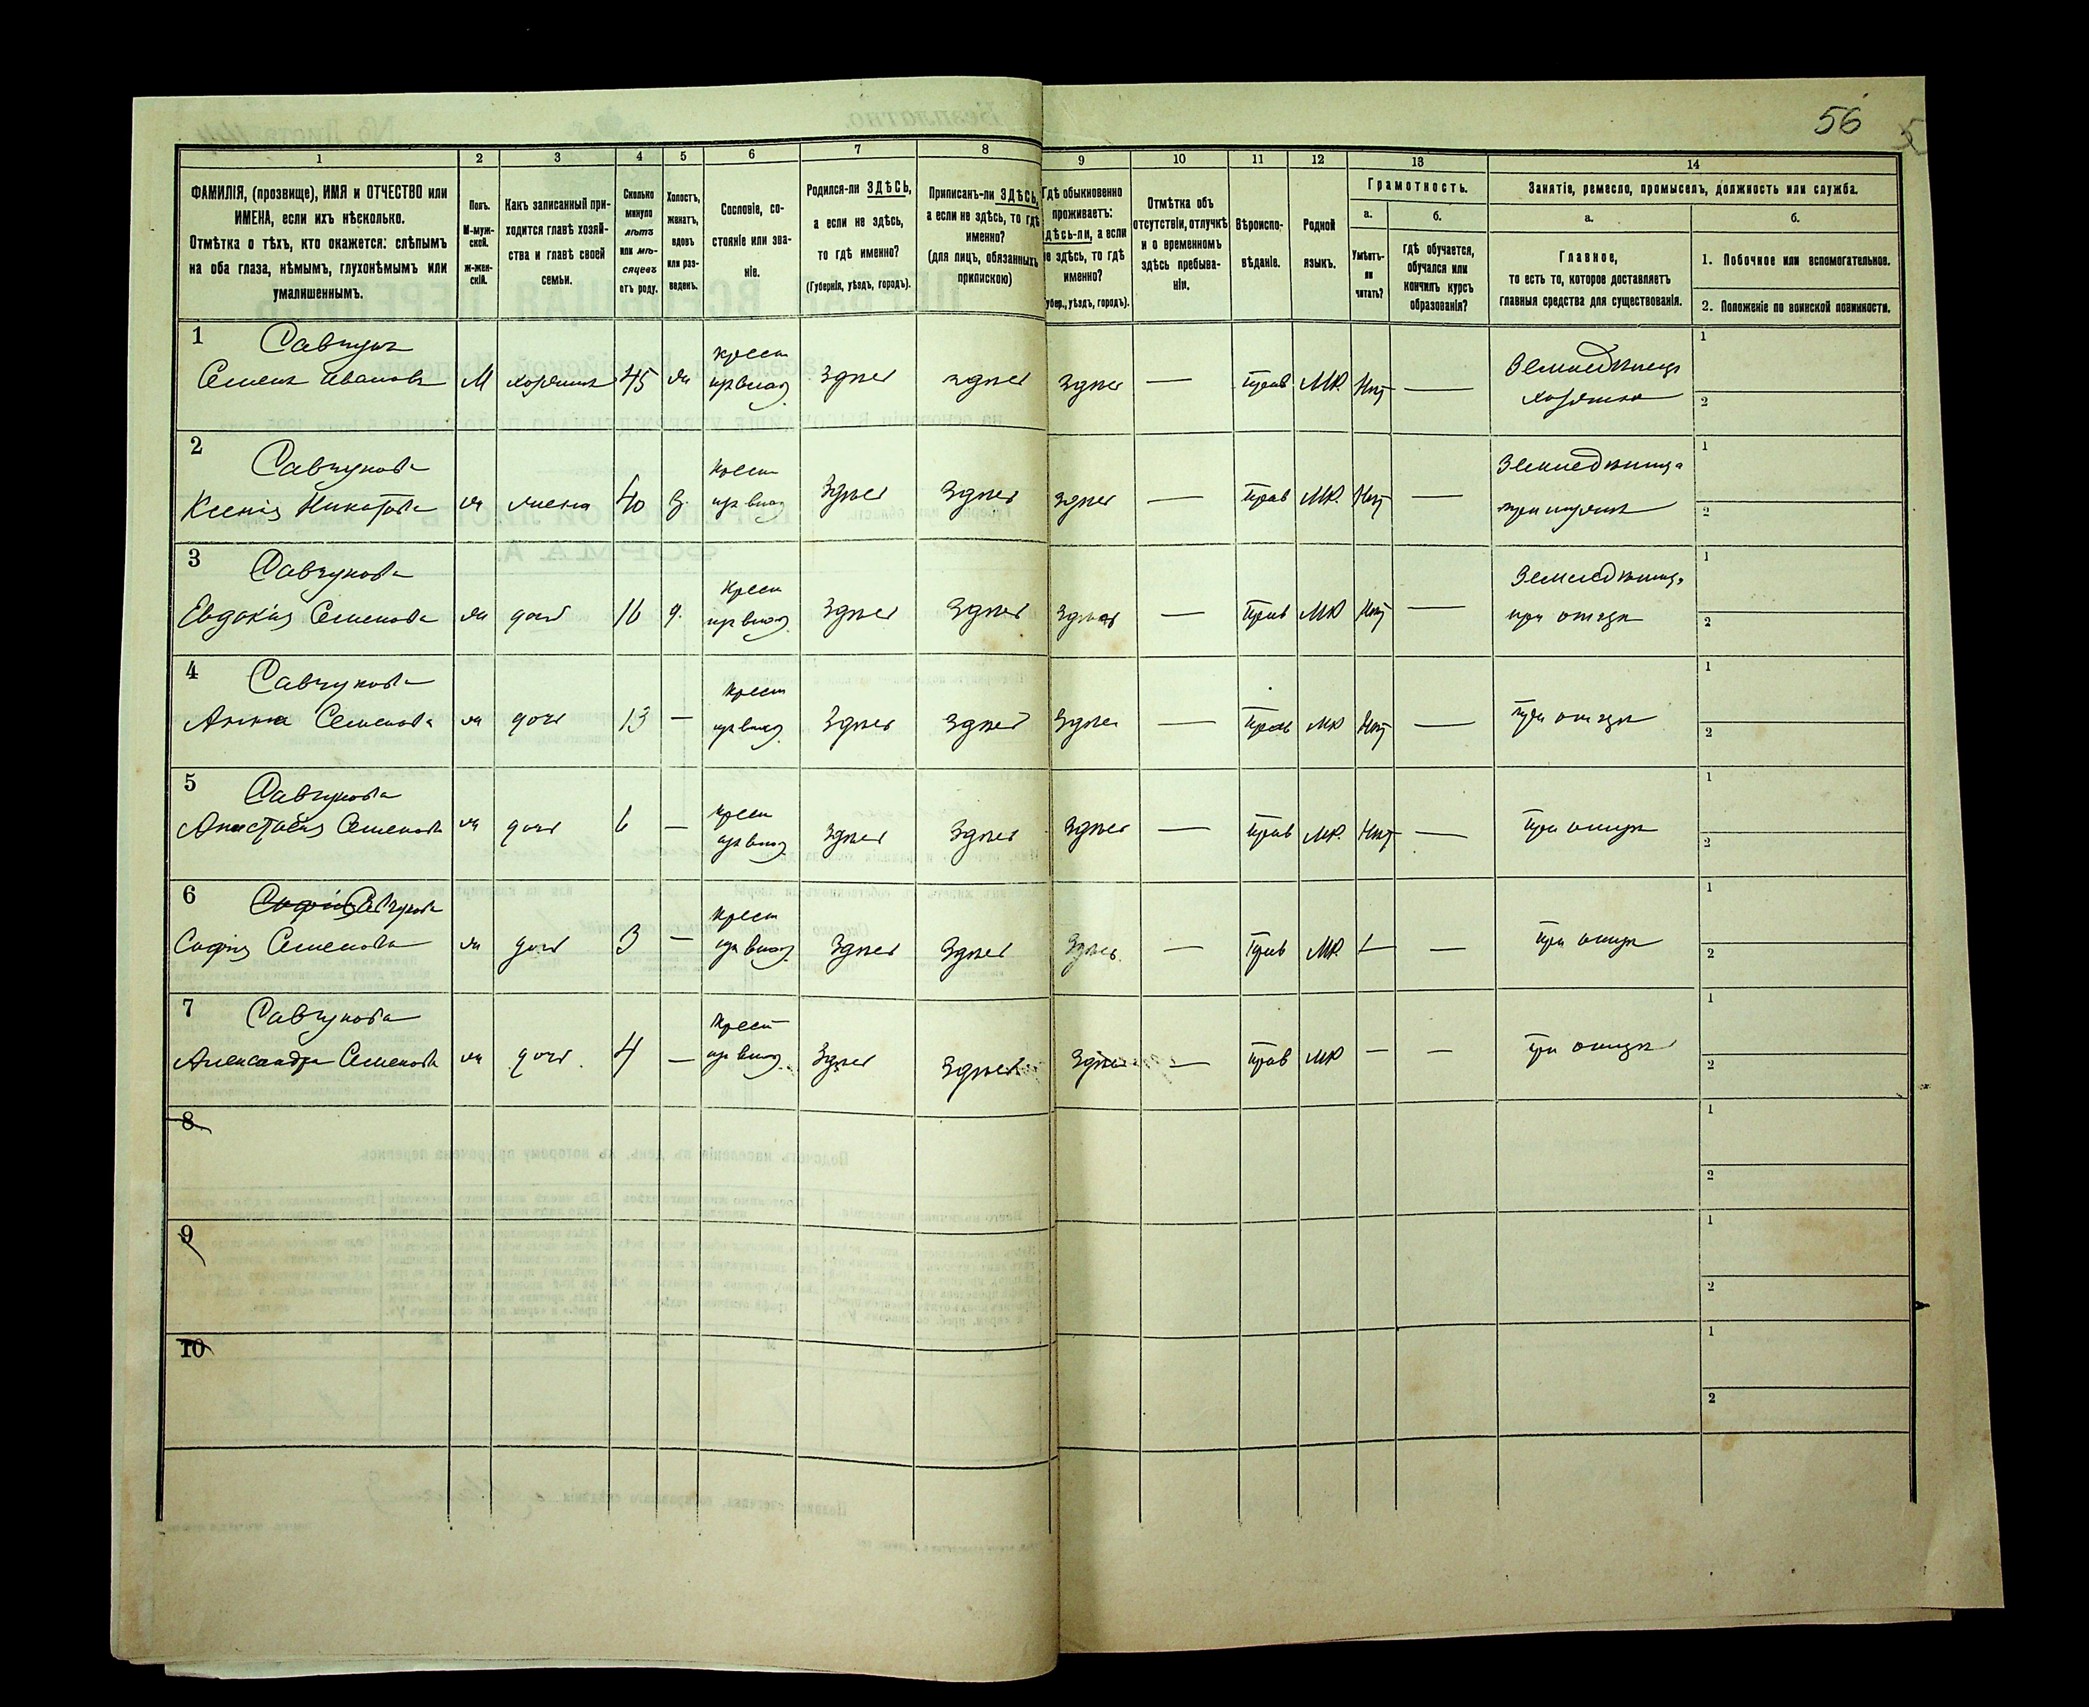 56
1
2
3
4
5
6
7
8
9
10
11
12
13
14
ФАМИЛІЯ, (прозвище), ИМЯ и ОТЧЕСТВО или
ИМЕНА, если ихъ нѣсколько.
Отмѣтка о тѣхъ, кто окажется: слѣпымъ
на оба глаза, нѣмымъ, глухонѣмымъ или
умалишеннымъ.
Полъ.
М-муж-
ской.
ж-жен-
скій.
Какъ записанный при-
ходится главѣ хозяй-
ства и главѣ своей
семьи.
Сколько
минуло
лѣтъ
или мѣ-
сяцевъ
отъ роду.
Холостъ,
женатъ,
вдовъ
или раз-
веденъ.
Сословіе, со-
стояніе или зва-
ніе.
Родился-ли ЗДѢСЬ,
а если не здѣсь,
то гдѣ именно?
(Губернія, уѣздъ, городъ).
Приписанъ-ли ЗДѢСЬ,
а если не здѣсь, то гдѣ
именно?
(для лицъ, обязанныхъ
припискою)
Гдѣ обыкновенно
проживаетъ:
здѣсь-ли, а если
не здѣсь, то гдѣ
именно?
(Губер., уѣздъ, городъ).
Отмѣтка объ
отсутствіи, отлучкѣ
и о временномъ
здѣсь пребыва-
ніи.
Вѣроиспо-
вѣданіе.
Родной
языкъ.
Грамотность.
а.
Умѣетъ-
ли
читать?
б.
гдѣ обучается,
обучался или
кончилъ курсъ
образованія?
Занятіе, ремесло, промыселъ, должность или служба.
а.
Главное,
то есть то, которое доставляетъ
главныя средства для существованія.
б.
1. Побочное или вспомогательное.
2. Положеніе по воинской повинности.
1 Савчукъ
Семенъ Ивановъ М хозяинъ 45 ж крест. здѣсь здѣсь здѣсь — Прав МР. Нѣт — Земледѣлецъ
хозяинъ
1
2
2 Савчукова
Ксенія ж жена 40 з. крест. здѣсь здѣсь здѣсь — Прав МР. Нѣт — Земледѣлица
при мужѣ
1
2
3 Савчукова
Евдокія Семенова ж дочь 16 д. крест. здѣсь здѣсь здѣсь — Прав МР Нѣт — Земледѣлица
при отцѣ
1
2
4 Савчукова
Анна Семенова ж дочь 13 — крест. здѣсь здѣсь здѣсь — Прав МР Нѣт — При отцѣ
1
2
5 Савчукова
Анастасія Семенова ж дочь 6 — крест. здѣсь здѣсь здѣсь — Прав МР. Нѣт — При отцѣ
1
2
6 Софія Савчукова
Софія Семенова ж дочь 3 — крест. здѣсь здѣсь здѣсь — Прав МР. — — При отцѣ
1
2
7 Савчукова
Александра Семенова ж дочь 4 — крест. здѣсь здѣсь здѣсь — Прав МР — — При отцѣ
1
2
8
1
2
9
1
2
10
1
2